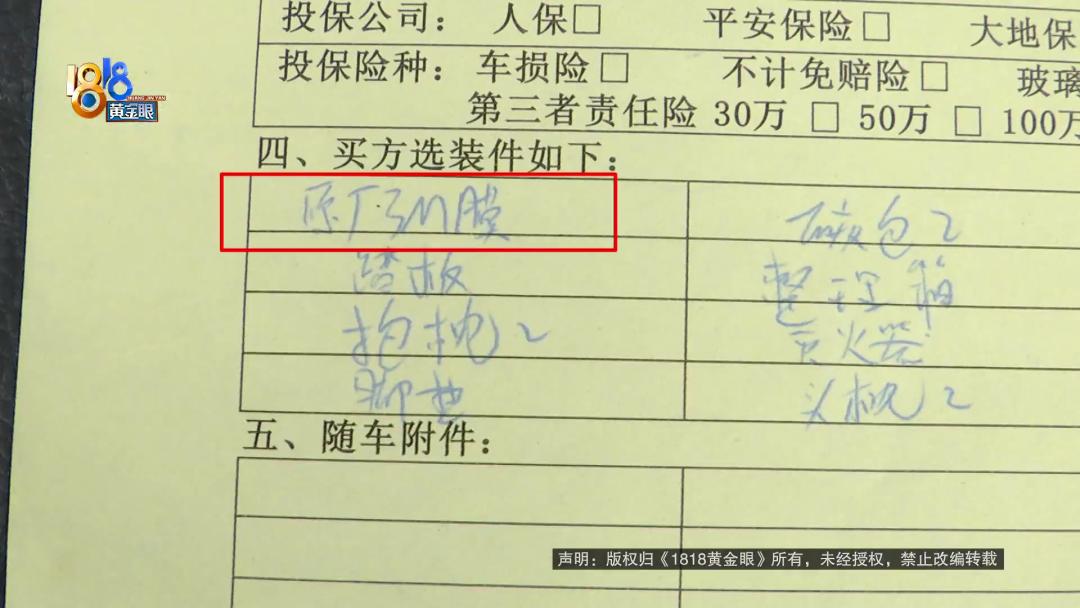 投保公司： 人保□ 平安保险□ 大地保
1818 黄金眼
投保险种：车损险□ 不计免赔险□ 玻璃
第三者责任险 30万 □ 50万 □ 100万
四、买方选装件如下：
原厂3M膜
踏板 整理箱
抱枕2 灭火器
脚垫 头枕2
五、随车附件：
声明：版权归《1818黄金眼》所有，未经授权，禁止改编转载